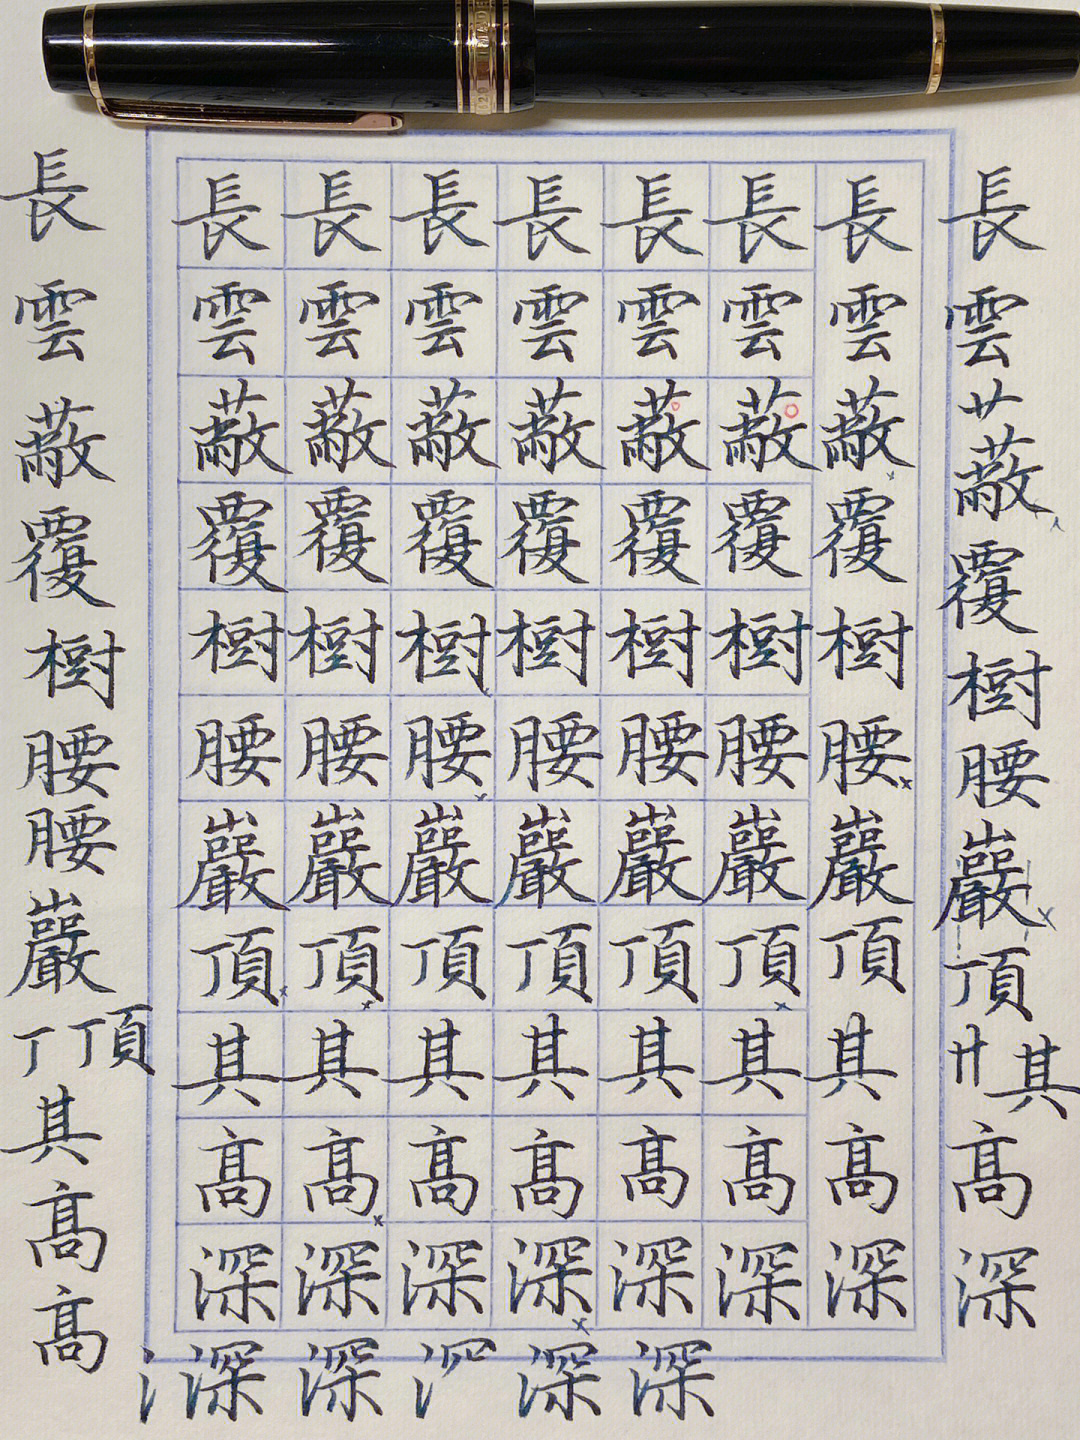 長長長長長長長長長
雲雲雲雲雲雲雲雲雲
蔽蔽蔽蔽蔽蔽蔽蔽艹蔽
覆覆覆覆覆覆覆覆覆
樹樹樹樹樹樹樹樹樹
腰腰腰腰腰腰腰腰腰
腰
巖巖巖巖巖巖巖巖巖
丁頂頂頂頂頂頂頂頂頂
其其其其其其其其其
髙髙髙髙髙髙髙髙髙
髙深深深深深深深深
深深深深